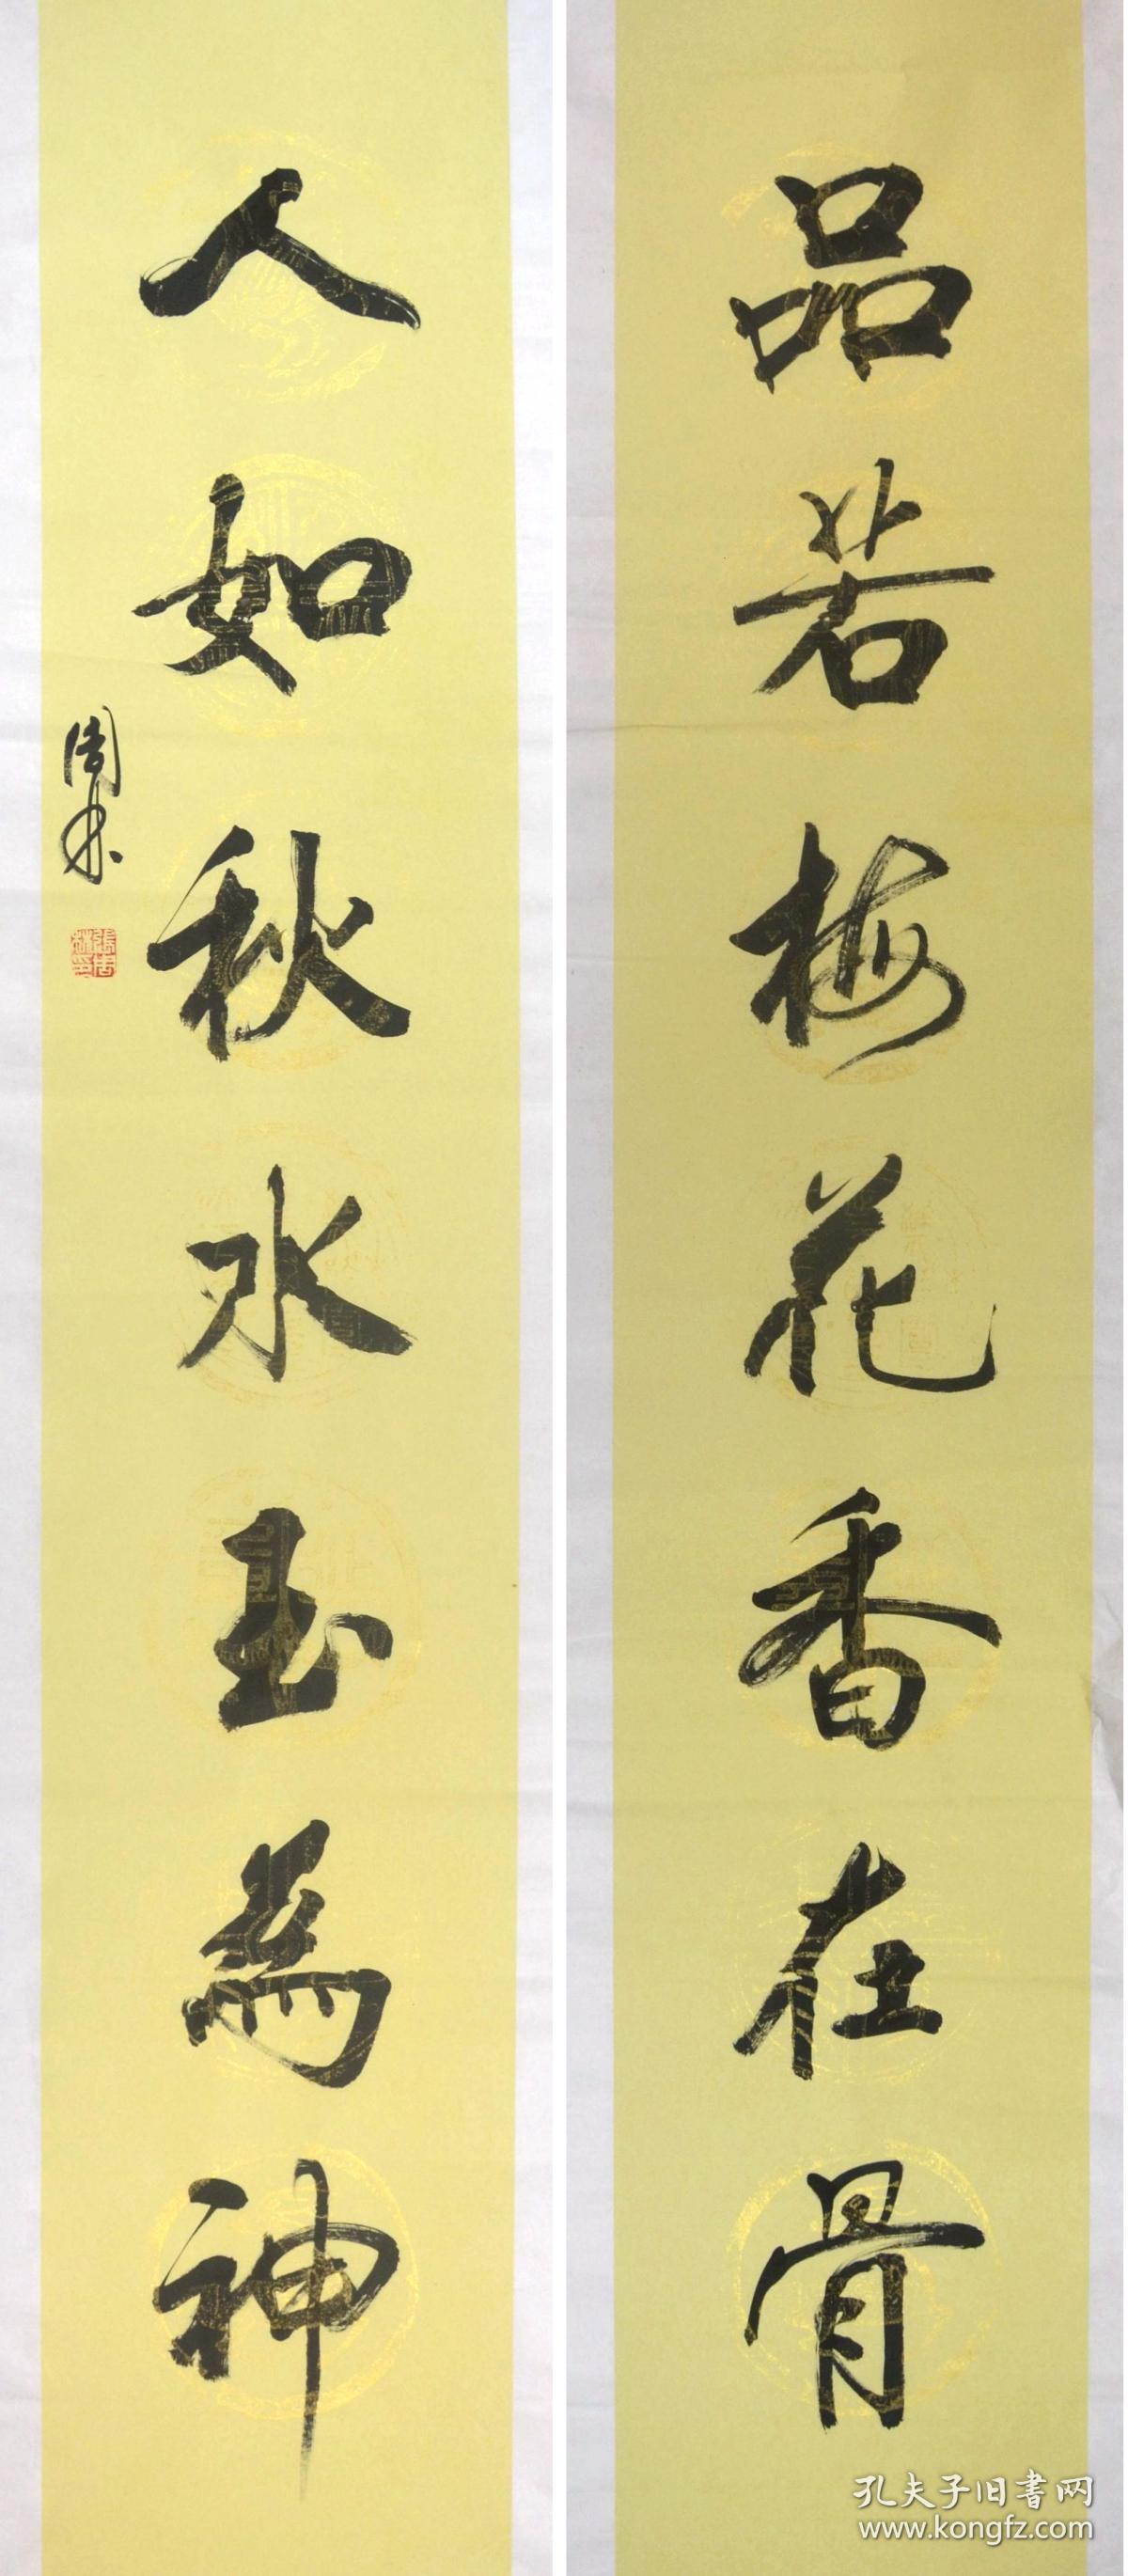 品若梅花香在骨
人如秋水玉為神
周林
孔夫子旧書网
www.kongfz.com